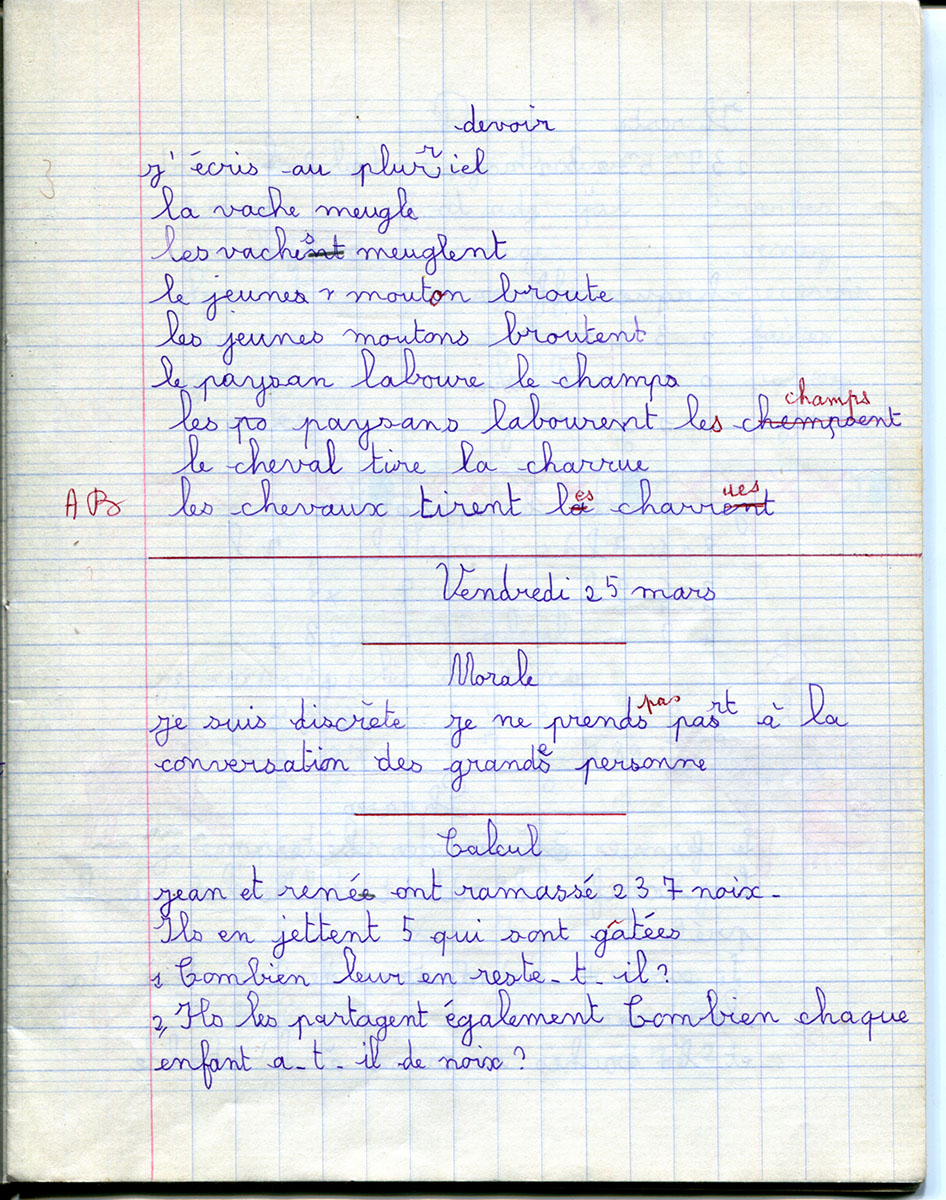 devoir
j'écris au pluriel
la vache meugle
les vaches meuglent
le jeunes mouton broute
les jeunes moutons broutent
le paysan laboure le champs
champs
les po paysans labourent les chempsent
le cheval tire la charrue
AB les chevaux tirent les charrues
Vendredi 25 mars
Morale
je suis discrète je ne prends pas part à la
conversation des grandes personne
Calcul
jean et renée ont ramassé 237 noix.
Ils en jettent 5 qui sont gâtées
1 Combien leur en reste-t-il?
2, Ils les partagent également Combien chaque
enfant a-t-il de noix?